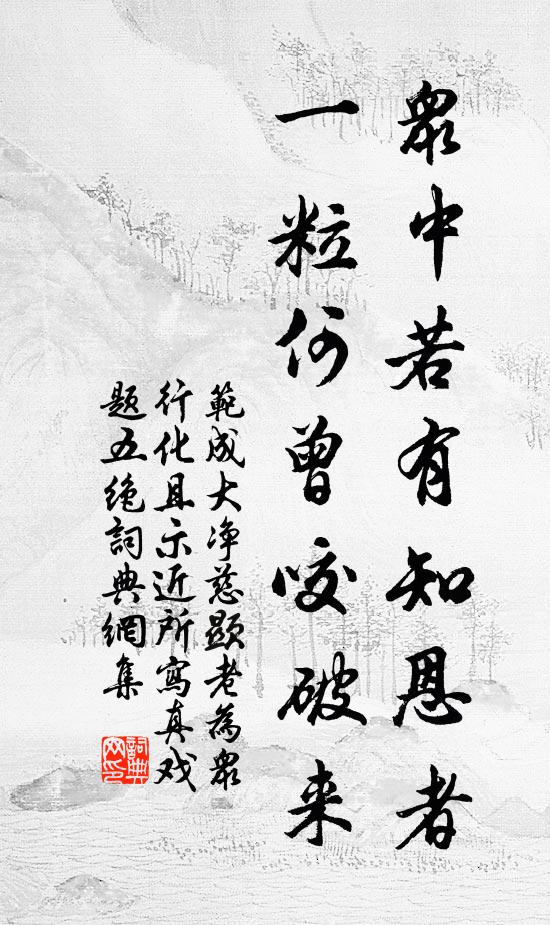 眾中若有知恩者
一粒何曾咬破来
範成大净慈顯老為眾
行化且示近所寫真戏
題五绝詞典網集
詞典
网印